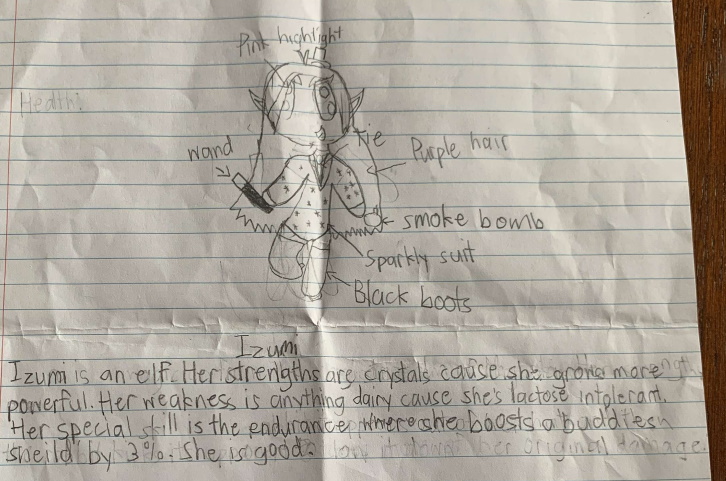 Pink highlight
Health!
Tie
wand
Purple hair
smoke bomb
Sparkly suit
Black boots
Izumi
Izumi is an elf. Her strengths are crystals cause she grows more
powerful. Her weakness is anything dairy cause she's lactose intolerant.
Her special skill is the endurance where she boosts a buddies
sheild by 3%. She is good. her original damage.